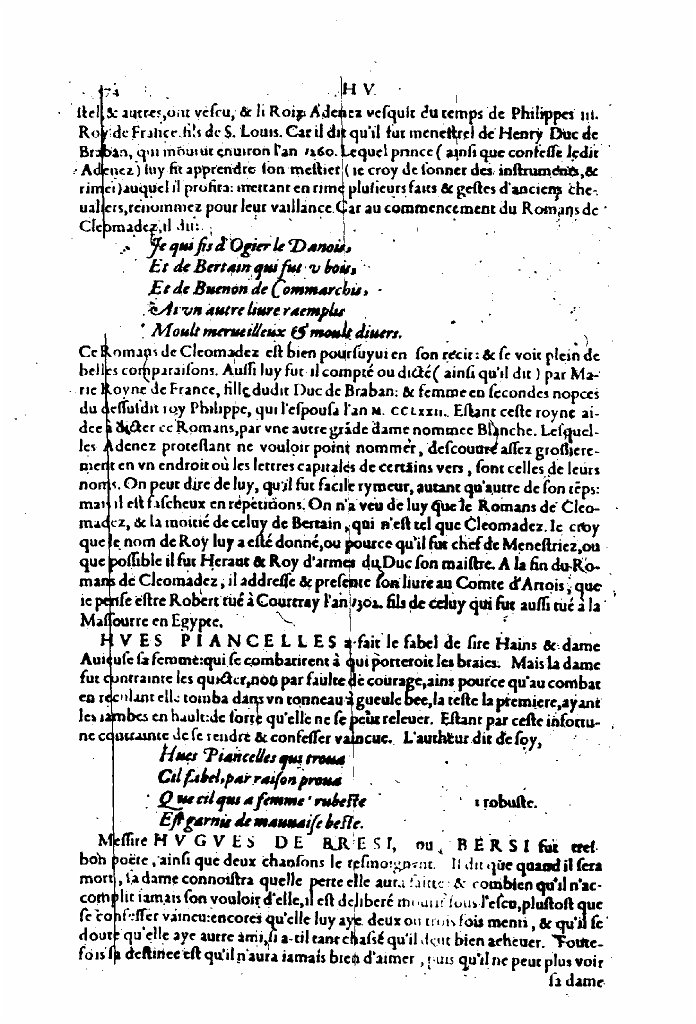 74 HV
stel, & autres, ont vescu, & li Roiz Adenez vesquit du temps de Philippes III.
Roy de France fils de S. Louis. Car il dit qu'il fut menestrel de Henry Duc de
Braban, qui mourut enuiron l'an 1260. Lequel prince (ainsi que confesse ledit
Adenez) luy fit apprendre son mestier (ie croy de sonner des instruments, &
rimer) auquel il profita: mettant en rime plusieurs faits & gestes d'anciens che-
ualiers, renommez pour leur vaillance. Car au commencement du Romans de
Cleomadez, il dit:
Je qui fis d'Ogier le Danois,
Et de Bertain qui fut u bois,
Et de Buenon de Commarchis,
Ai vn autre liure raemplis
Moult merueilleux & moult diuers.
Ce Romans de Cleomadez est bien poursuyui en son recit: & se voit plein de
belles comparaisons. Aussi luy fut il compté ou dicté (ainsi qu'il dit) par Ma-
rie Royne de France, fille dudit Duc de Braban: & femme en secondes nopces
du dessusdit roy Philippe, qui l'espousa l'an M. CCLXXII. Estant ceste royne ai-
dee à dicter ce Romans, par vne autre grãde dame nommee Blanche. Lesquel-
les Adenez protestant ne vouloir point nommer, descouure assez grossiere-
ment en vn endroit où les lettres capitales de certains vers, sont celles de leurs
noms. On peut dire de luy, qu'il fut facile rymeur, autant qu'autre de son tẽps:
mais il est fascheux en repetitions. On n'a veu de luy que le Romans de Cleo-
madez, & la moitié de celuy de Bertain, qui n'est tel que Cleomadez. Ie croy
que le nom de Roy luy a esté donné, ou pource qu'il fut chef de Menestriez, ou
que possible il fut Heraut & Roy d'armes du Duc son maistre. A la fin du Ro-
mans de Cleomadez, il addresse & presente son liure au Comte d'Artois, que
ie pense estre Robert tué à Courtray l'an 1302. fils de celuy qui fut aussi tué à la
Massourre en Egypte.
HVES PIANCELLES a fait le fabel de sire Hains & dame
Auieuse sa femme: qui se combatirent à qui porteroit les braies. Mais la dame
fut contrainte les quicter, non par faulte de courage, ains pource qu'au combat
en reculant elle tomba dans vn tonneau à gueule bee, la teste la premiere, ayant
les iambes en hault: de sorte qu'elle ne se peut releuer. Estant par ceste infortu-
ne contrainte de se rendre & confesser vaincue. L'autheur dit de soy,
Hues Piancelles qui troua
Cil fabel, par raison proua
Que cil qui a femme ¹ rubeste 1 robuste.
Est garnis de mauuaise beste.
Messire HVGVES DE BRESI, ou BERSI fut tres
bon poëte, ainsi que deux chansons le tesmoignent. Il dit que quand il sera
mort, sa dame connoistra quelle perte elle aura faitte: & combien qu'il n'ac-
complit iamais son vouloir d'elle, il est deliberé mourir sous l'escu, plustost que
se confesser vaincu: encores qu'elle luy aye deux ou trois fois menti, & qu'il se
doute qu'elle aye autre ami, si a-til tant chassé qu'il doit bien acheuer. Toute-
fois sa destinee est qu'il n'aura iamais bien d'aimer, puis qu'il ne peut plus voir
sa dame